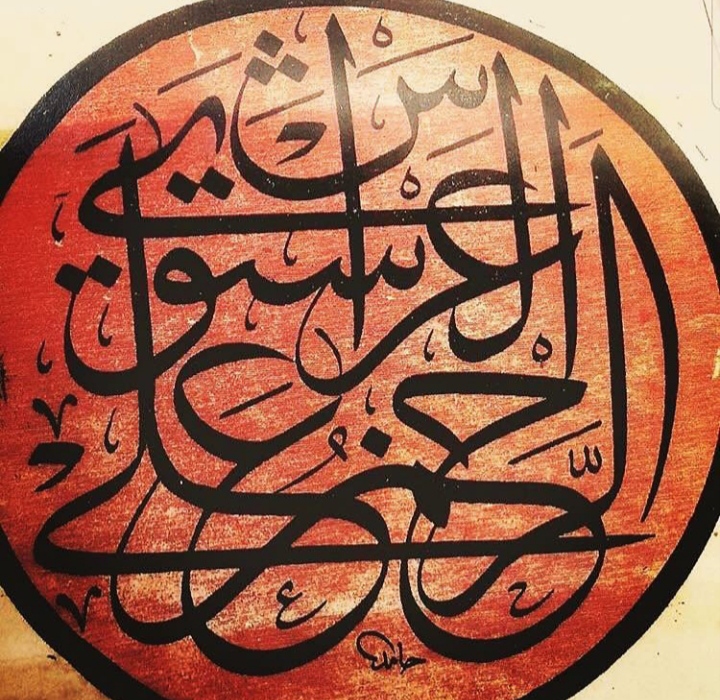 الرَّحْمٰنُ عَلَى
الْعَرْشِ اسْتَوٰى
حامد